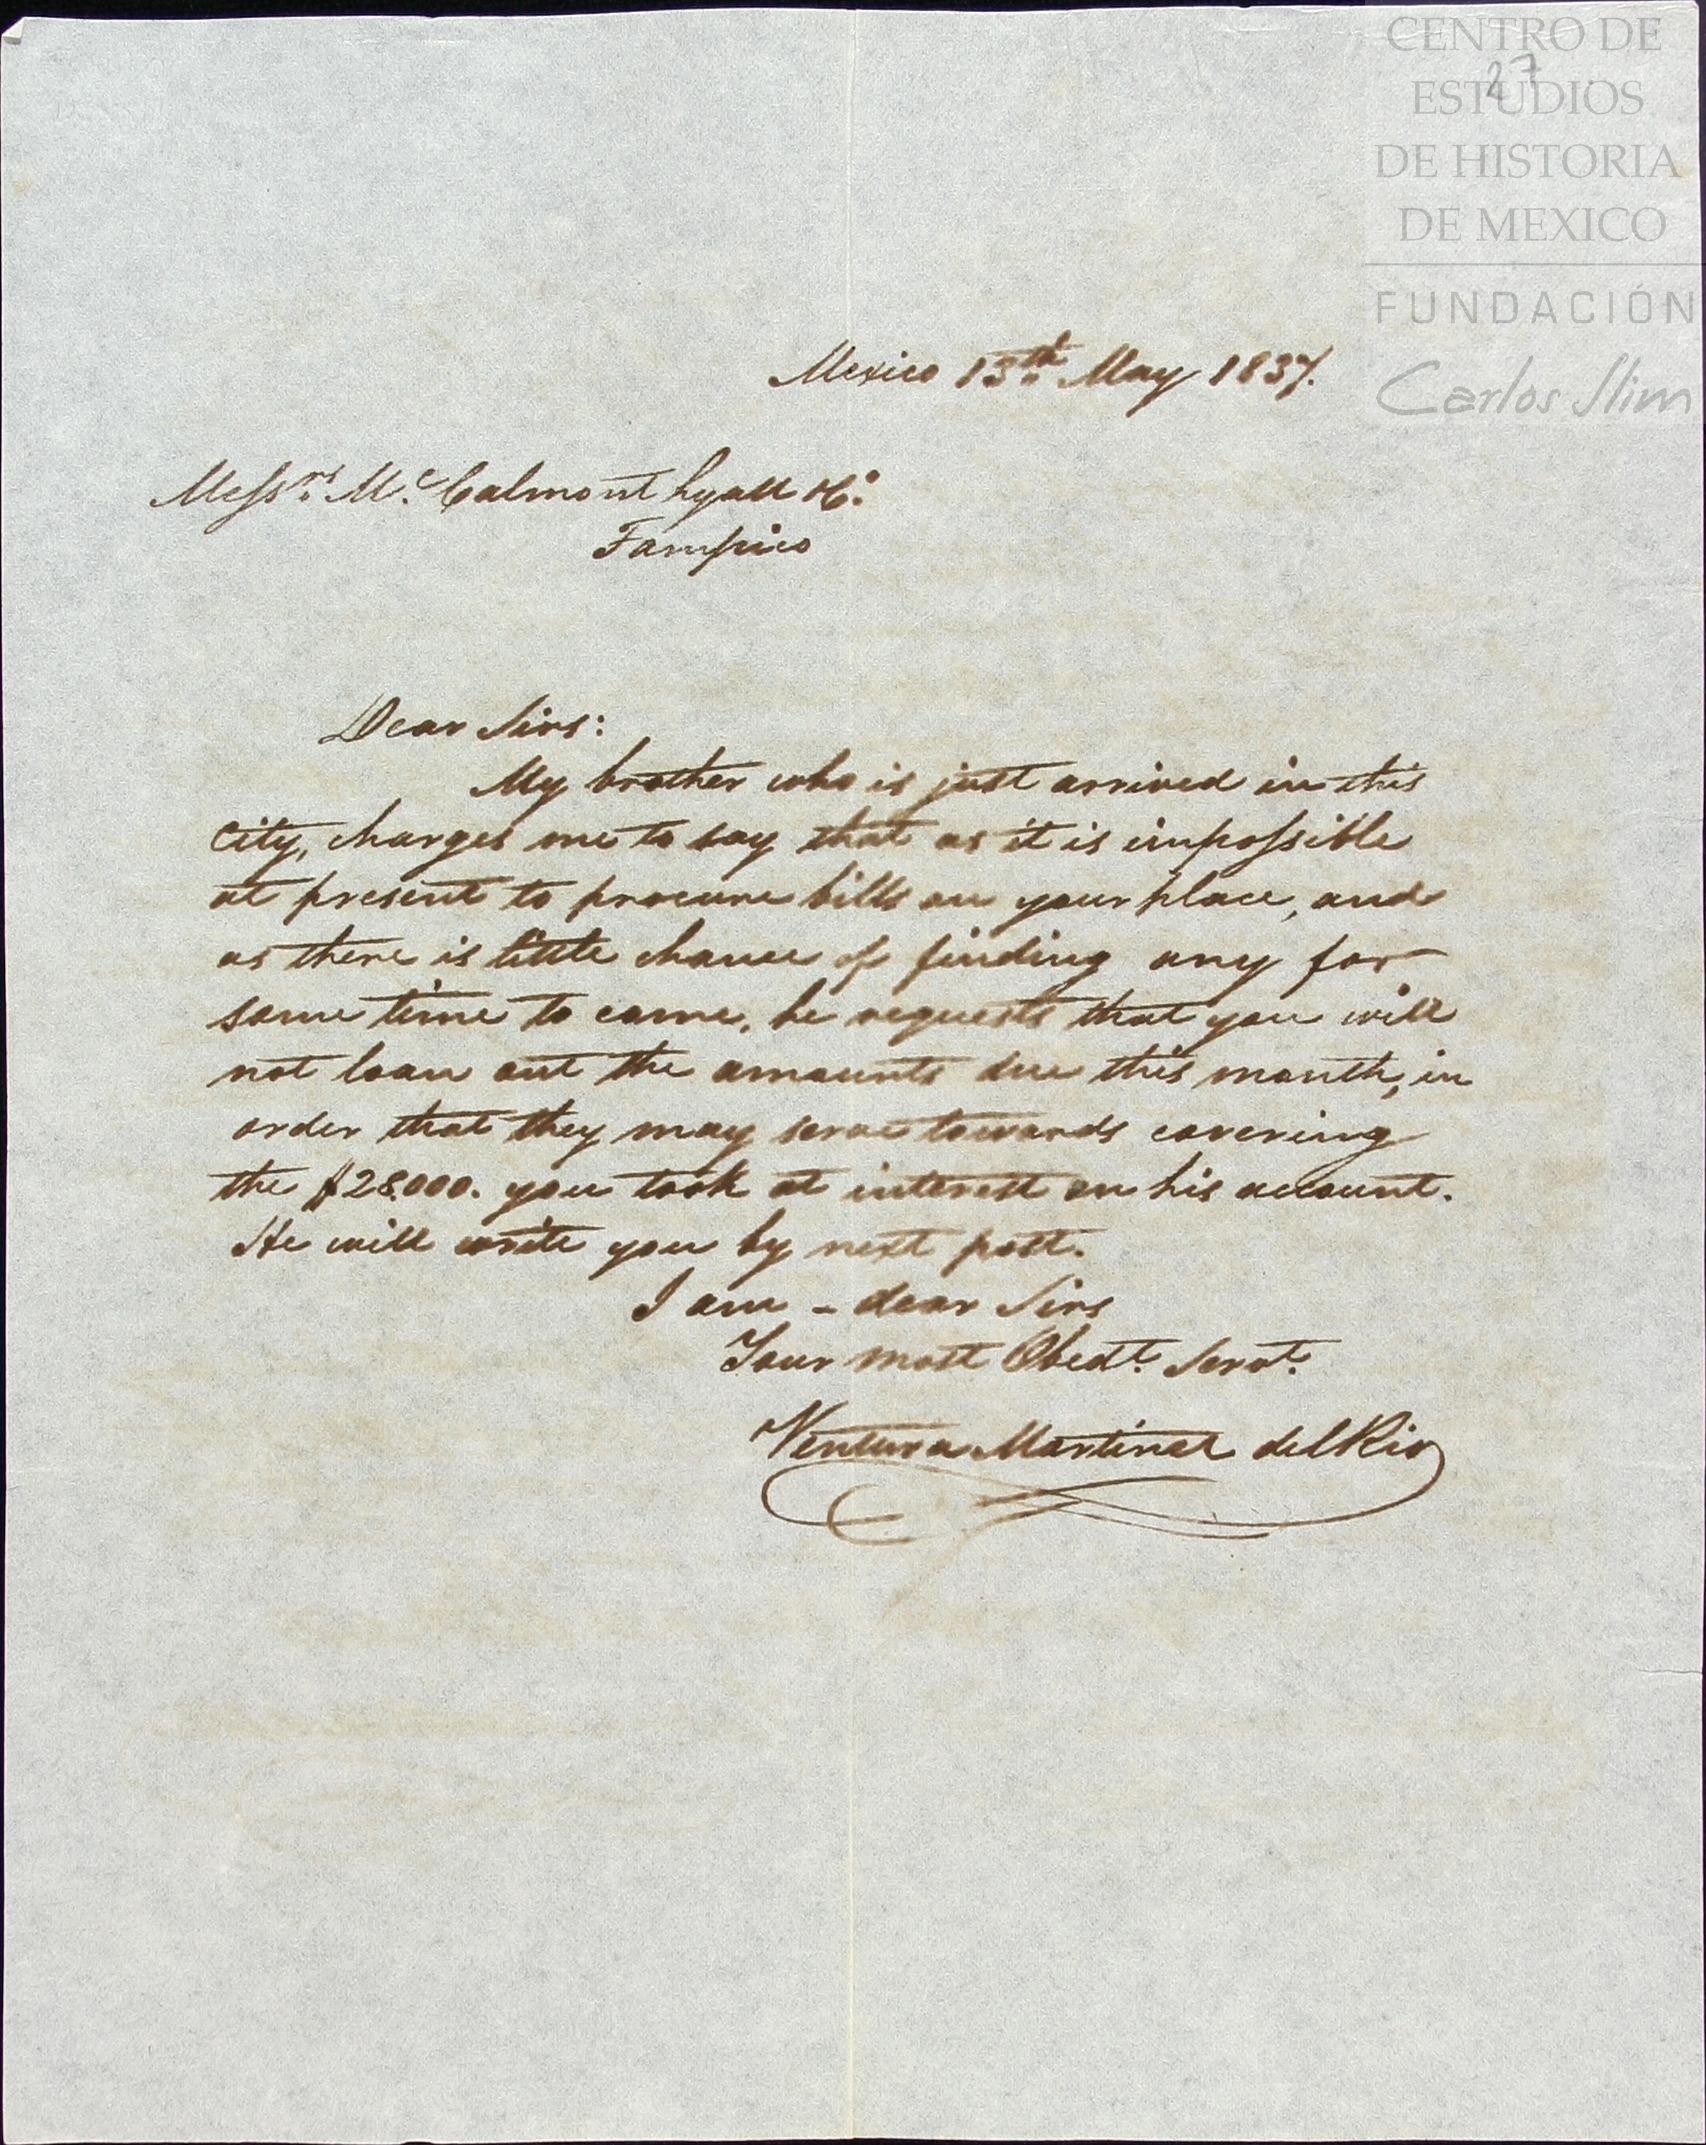 CENTRO DE
27
ESTUDIOS
DE HISTORIA
DE MEXICO
FUNDACIÓN
Carlos Slim
Mexico 13th. May 1837.
Messrs. Mc. Calmont Lyall &Co.
Tampico
Dear Sirs:
My brother who is just arrived in this
City, charges me to say that as it is impossible
at present to procure bills on your place, and
as there is little chance of finding any for
some time to come, he requests that you will
not loan out the amounts due this month, in
order that they may serve towards covering
the $28.000. you took at interest on his account.
He will write you by next post.
I am - dear Sirs
Your most Obedt. Servt.
Ventura Martinez del Rio